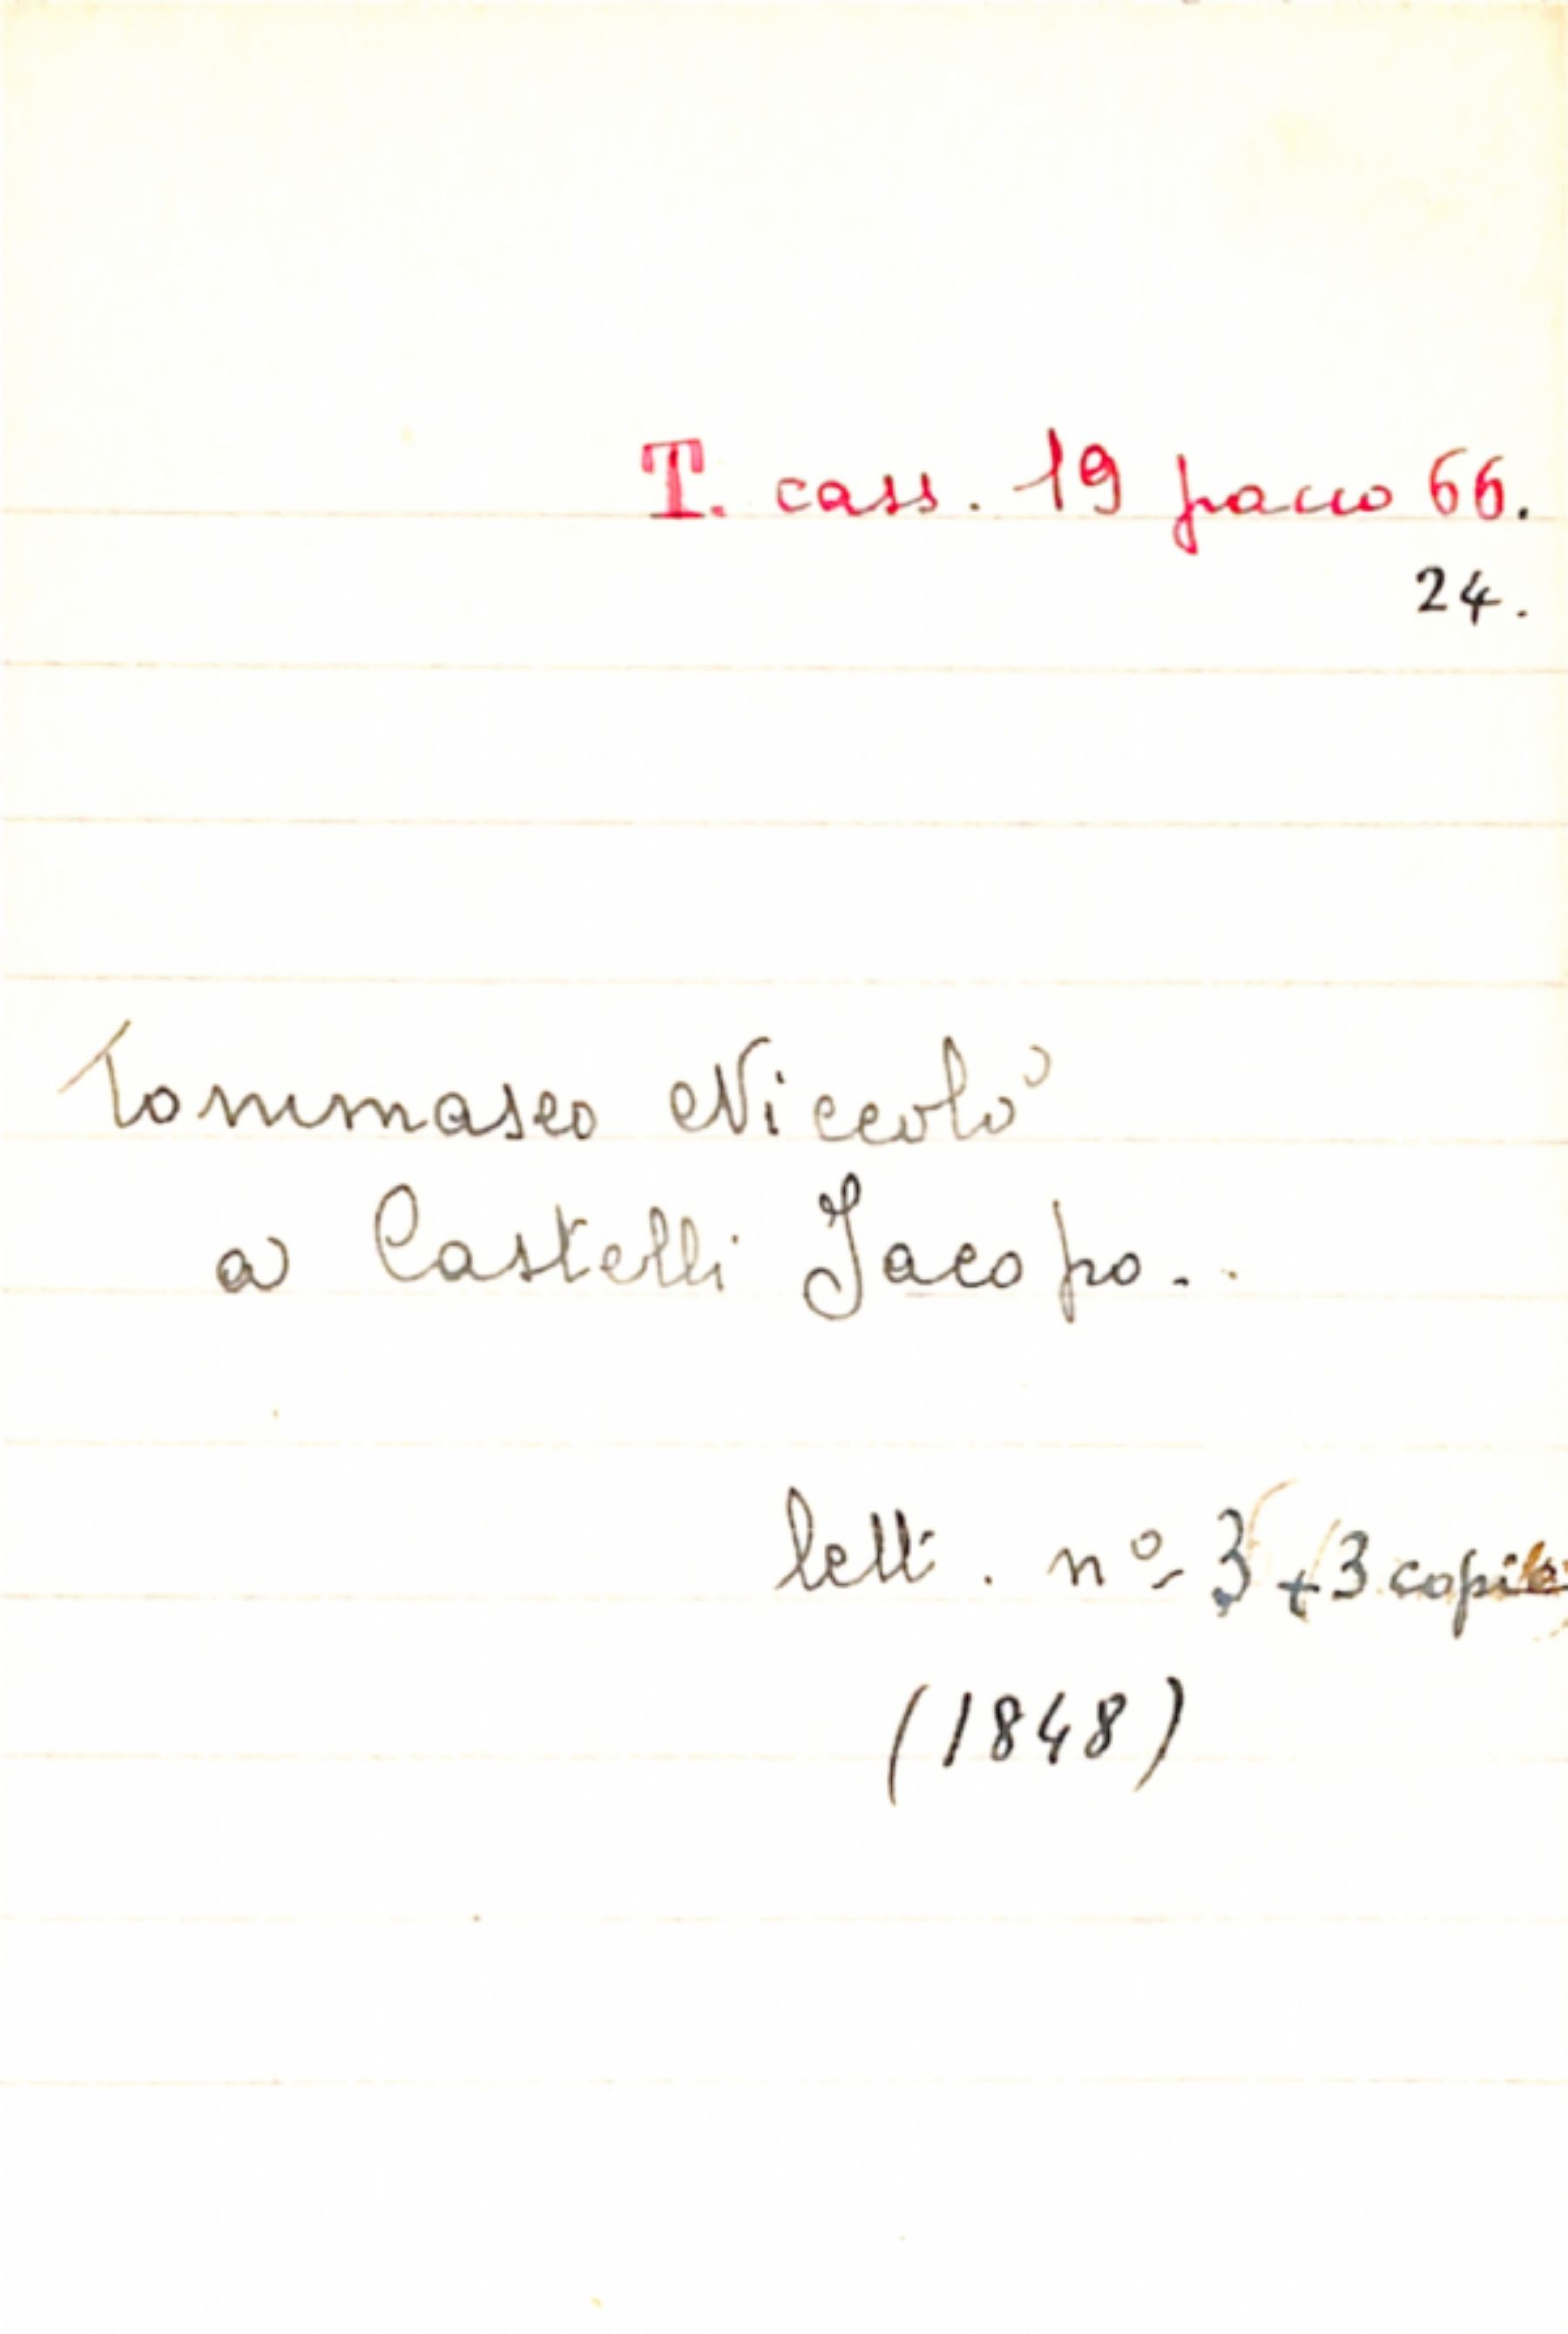 T. cass. 19 pacco 66.
24.
Tommaseo Niccolò
a Castelli Jacopo..
lett. nº 3 + 3 copie
(1848)